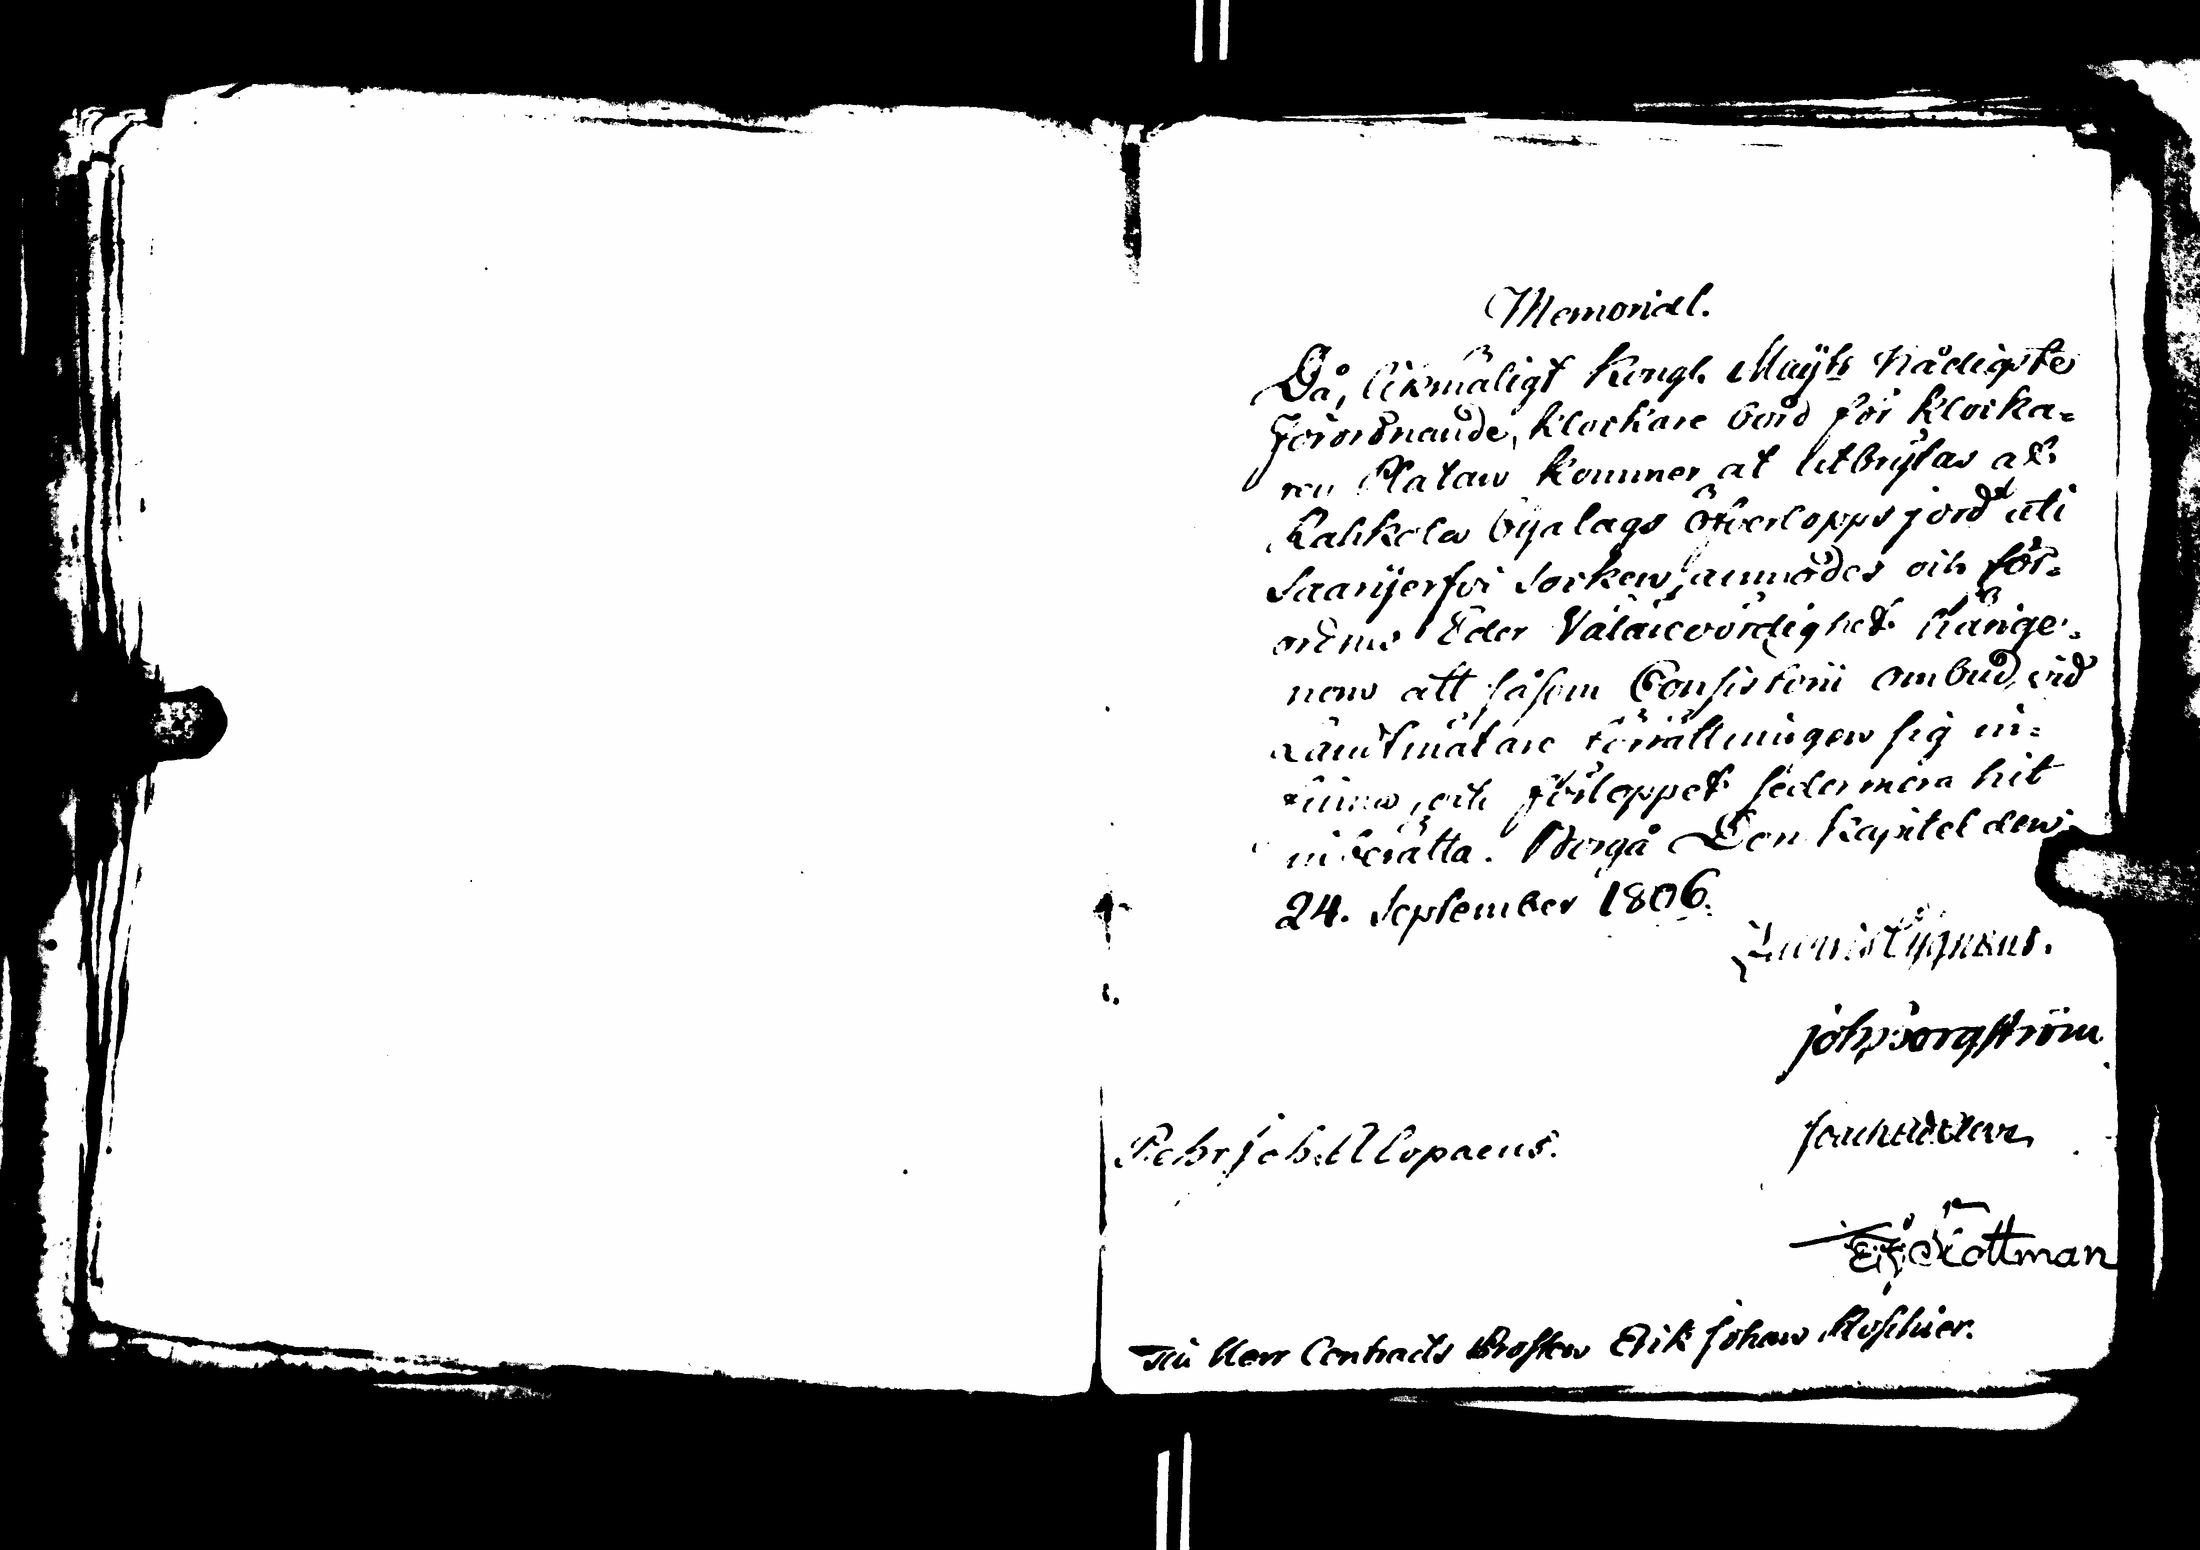 Memorial.
Då, likmäligt Kongl. Maÿts Nådigste
Förordnande, Klockare bord för klocka-
ren Platan kommer at utbrÿtas af
Kahkola bÿalags öfverloppsjord uti
Saarijerfvi Socken, anmodes och för-
ordnas Eder Välärevördighet härige-
nom att såsom Consistorii ombud vid
Landtmätare förrättningen sig in-
finna, och förloppet sedermera hit
inberätta. Borgå Dom Kapitel den
24. September 1806.
Zachris Cygnæus.
Joh. Borgström
Pehr Joh. Alopaeus.
Kottman
Till Herr Contracts Prosten Erik Johan Roschier.